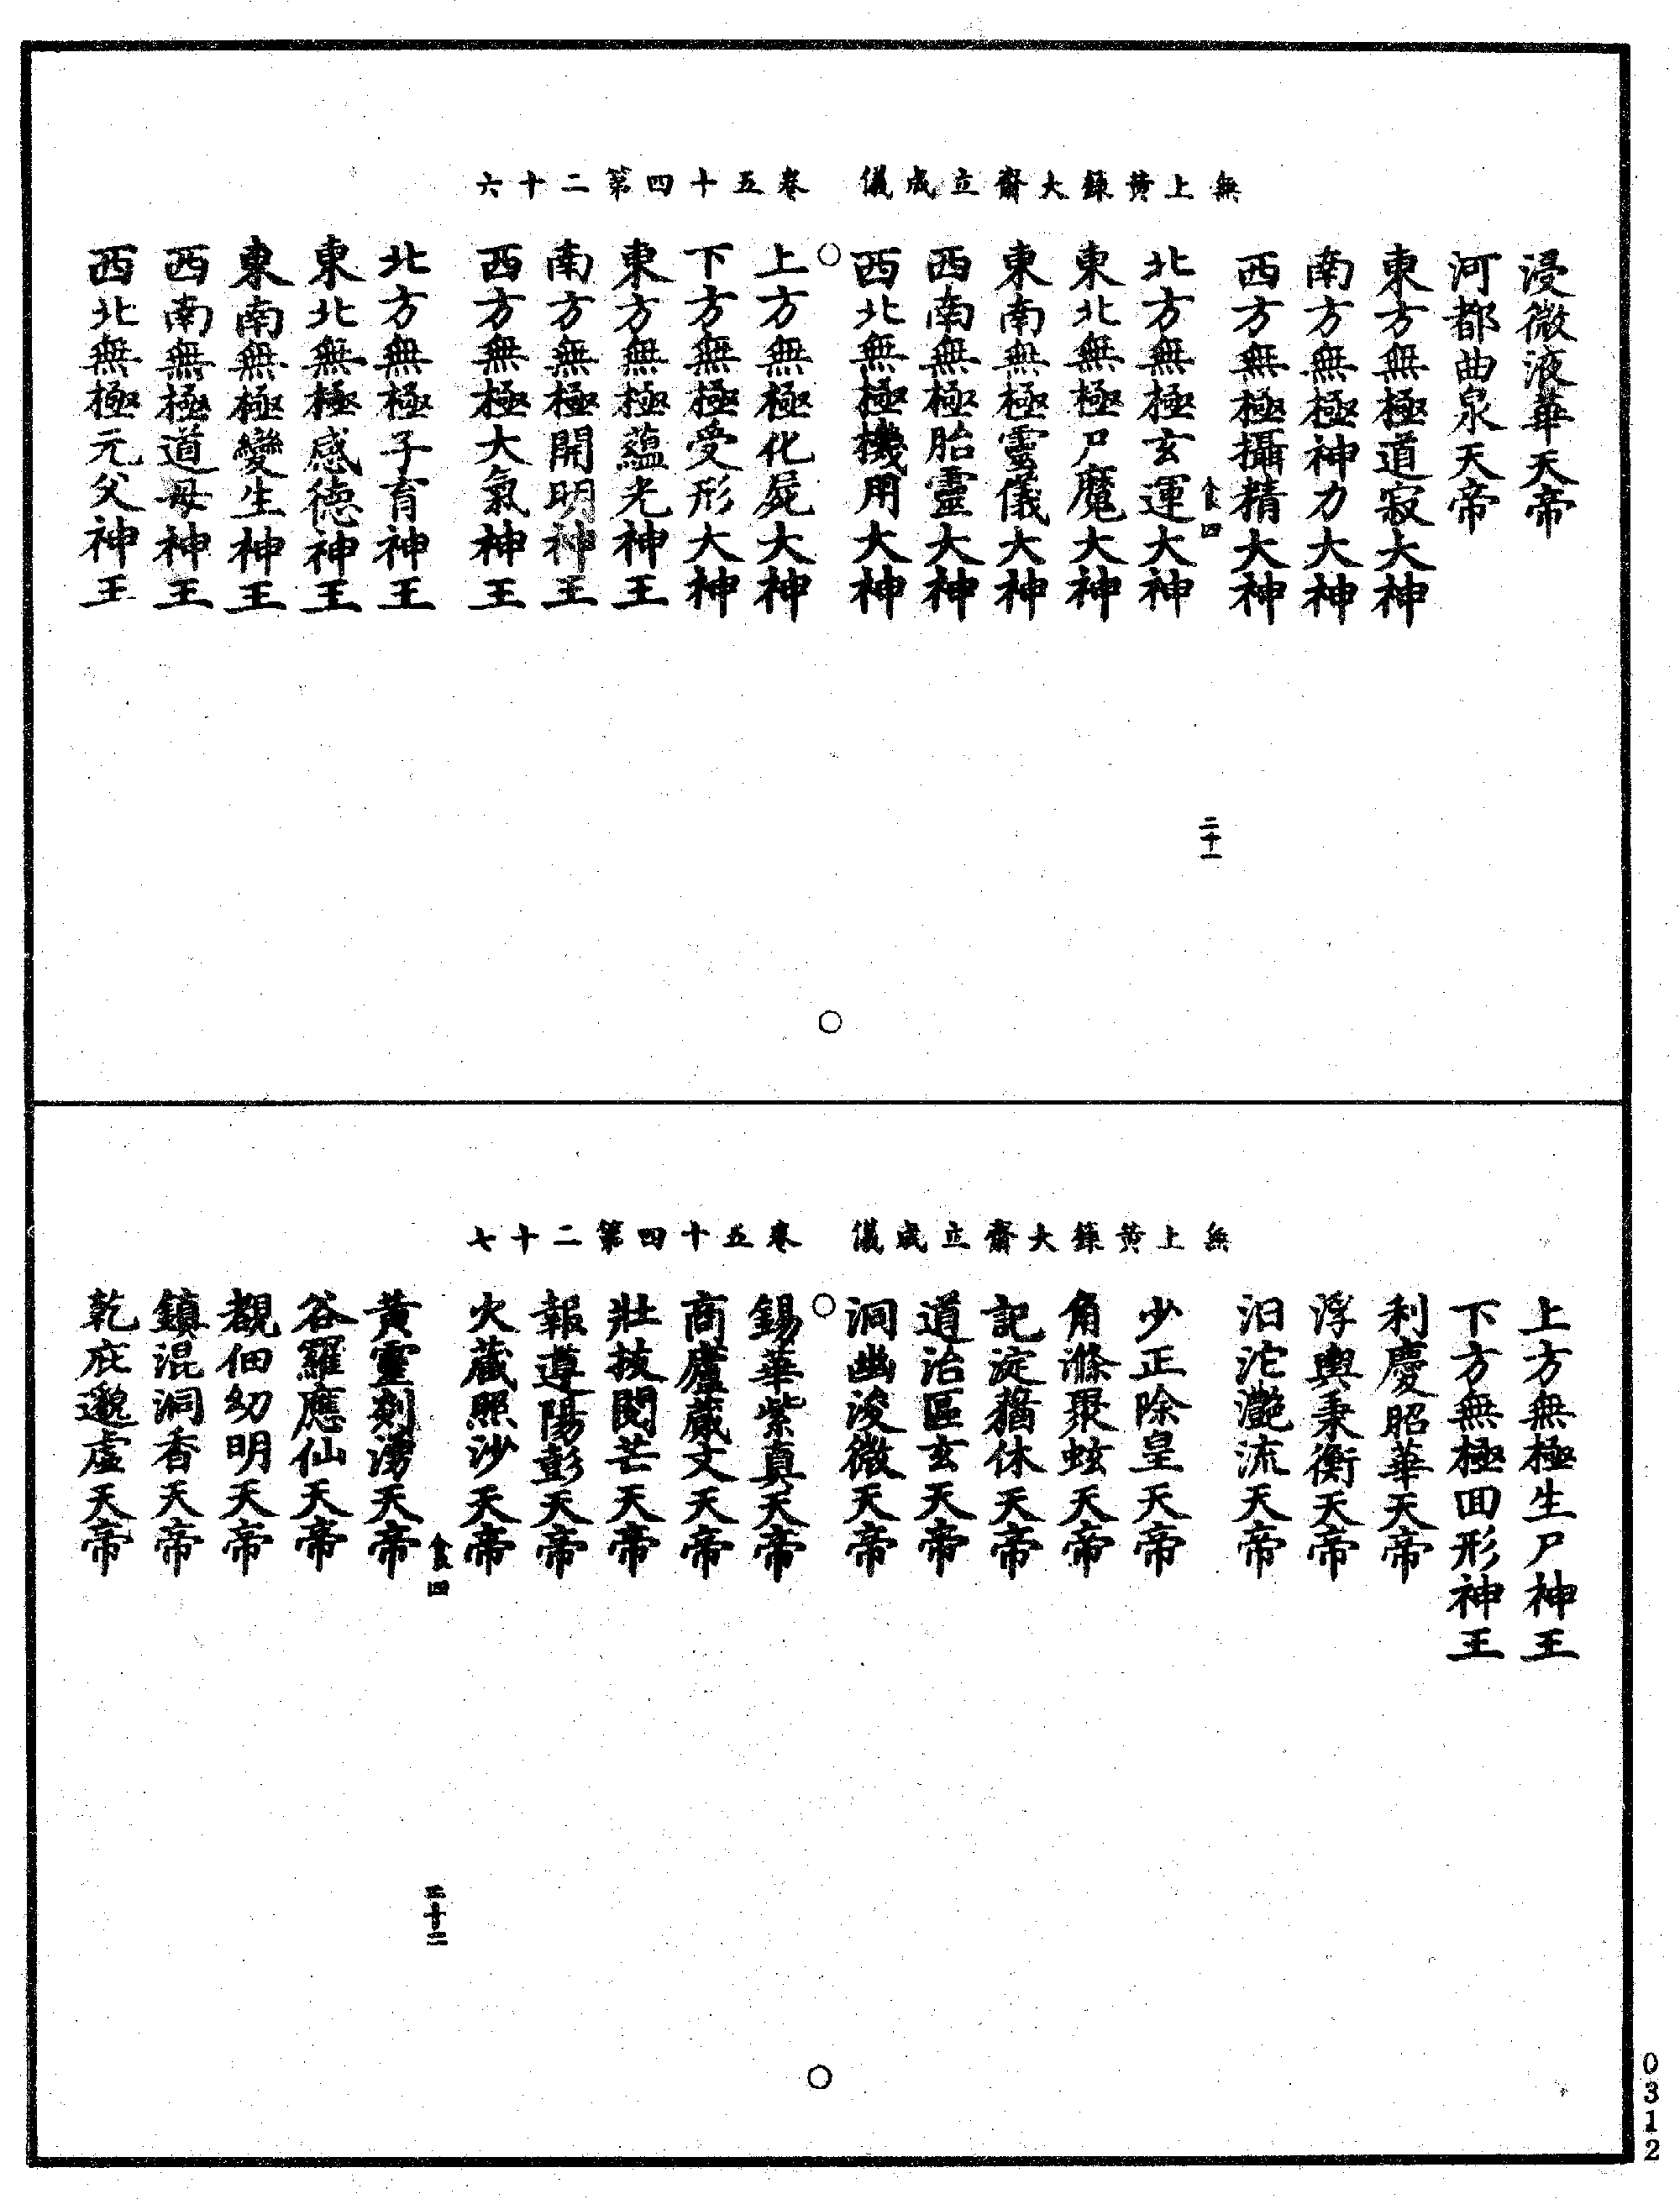 無上黃籙大齋立成儀　卷五十四第二十六
浸微液華天帝
河都曲泉天帝
東方無極道寂大神
南方無極神力大神
西方無極攝精大神
食四　二十一
北方無極玄運大神
東北無極尸魔大神
東南無極靈儀大神
西南無極胎靈大神
西北無極機用大神
上方無極化屍大神
下方無極受形大神
東方無極蘊光神王
南方無極開明神王
西方無極大氣神王
北方無極子育神王
東北無極感德神王
東南無極變生神王
西南無極道母神王
西北無極元父神王
無上黃籙大齋立成儀　卷五十四第二十七
上方無極生尸神王
下方無極回形神王
利慶昭華天帝
浮輿秉衡天帝
汨沱灔流天帝
少正除皇天帝
角滌聚蚿天帝
記淀猶休天帝
道治區玄天帝
洞幽浚微天帝
錫華紫真天帝
商廬蕆文天帝
壯拔閔芒天帝
報遵陽彭天帝
火蕆照沙天帝
食四
黃靈剡湧天帝
谷羅應仙天帝
觀佃幼明天帝
鎮混洞香天帝
乾庇邈虛天帝
0312